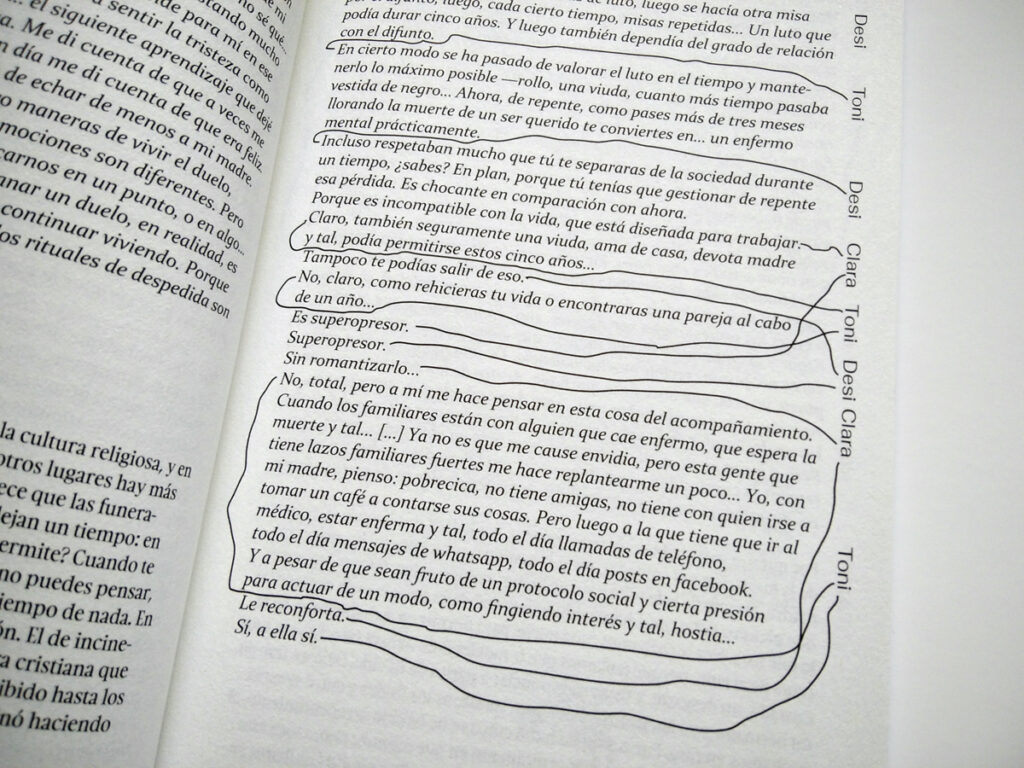 sentir la tristeza como
el siguiente aprendizaje que dejé
Me di cuenta de que a veces me
día me di cuenta de que era feliz.
de echar de menos a mi madre.
maneras de vivir el duelo.
emociones son diferentes. Pero
en un punto, o en algo...
un duelo, en realidad, es
continuar viviendo. Porque
los rituales de despedida son
la cultura religiosa, y en
otros lugares hay más
que las funera-
dejan un tiempo: en
permite? Cuando te
no puedes pensar,
tiempo de nada. En
El de incine-
cristiana que
hasta los
haciendo
luto, luego se hacía otra misa
por el difunto, luego, cada cierto tiempo, misas repetidas... Un luto que
podía durar cinco años. Y luego también dependía del grado de relación
con el difunto.
En cierto modo se ha pasado de valorar el luto en el tiempo y mante-
nerlo lo máximo posible —rollo, una viuda, cuanto más tiempo pasaba
vestida de negro... Ahora, de repente, como pases más de tres meses
llorando la muerte de un ser querido te conviertes en... un enfermo
mental prácticamente.
Incluso respetaban mucho que tú te separaras de la sociedad durante
un tiempo, ¿sabes? En plan, porque tú tenías que gestionar de repente
esa pérdida. Es chocante en comparación con ahora.
Porque es incompatible con la vida, que está diseñada para trabajar.
Claro, también seguramente una viuda, ama de casa, devota madre
y tal, podía permitirse estos cinco años...
Tampoco te podías salir de eso.
No, claro, como rehicieras tu vida o encontraras una pareja al cabo
de un año...
Es superopresor.
Superopresor.
Sin romantizarlo...
No, total, pero a mí me hace pensar en esta cosa del acompañamiento.
Cuando los familiares están con alguien que cae enfermo, que espera la
muerte y tal... [...] Ya no es que me cause envidia, pero esta gente que
tiene lazos familiares fuertes me hace replantearme un poco... Yo, con
mi madre, pienso: pobrecica, no tiene amigas, no tiene con quien irse a
tomar un café a contarse sus cosas. Pero luego a la que tiene que ir al
médico, estar enferma y tal, todo el día llamadas de teléfono,
todo el día mensajes de whatsapp, todo el día posts en facebook.
Y a pesar de que sean fruto de un protocolo social y cierta presión
para actuar de un modo, como fingiendo interés y tal, hostia...
Le reconforta.
Sí, a ella sí.
Desi
Toni
Desi
Clara
Toni
Desi
Clara
Toni